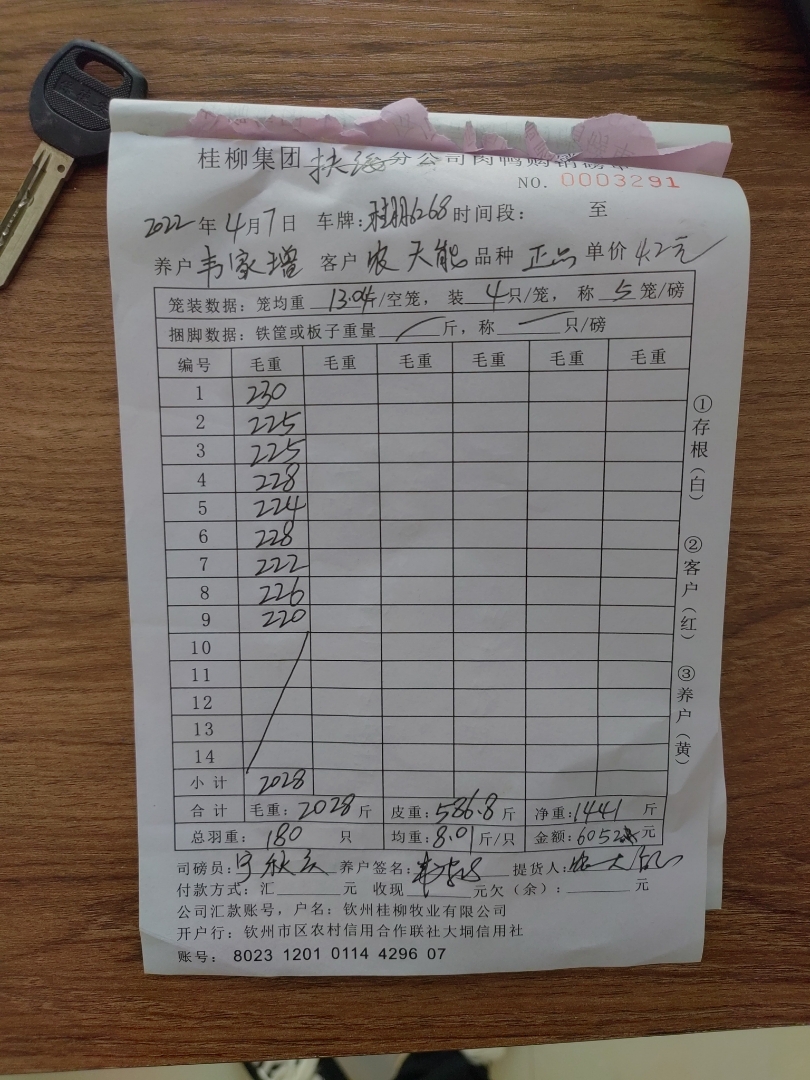 桂柳集团扶绥分公司肉鸭购销磅单
NO. 0003291
2022年4月7日 车牌: 268 时间段: 至
养户 韦家增 客户 农天能 品种 正品 单价 4.2元
笼装数据: 笼均重 13.04斤/空笼, 装 4只/笼, 称 5笼/磅
捆脚数据: 铁筐或板子重量 斤, 称 只/磅
编号 毛重 毛重 毛重 毛重 毛重 毛重
1 230
2 225
3 225
4 228
5 224
6 228
7 222
8 226
9 220
10
11
12
13
14
小计 2028
合计 毛重: 2028斤 皮重: 586.8斤 净重: 1441斤
总羽重: 180 只 均重: 8.01斤/只 金额: 6052元
司磅员: 养户签名: 提货人:
付款方式: 汇 元 收现 元欠(余): 元
公司汇款账号, 户名: 钦州桂柳牧业有限公司
开户行: 钦州市区农村信用合作联社大垌信用社
账号: 8023 1201 0114 4296 07
①存根(白) ②客户(红) ③养户(黄)